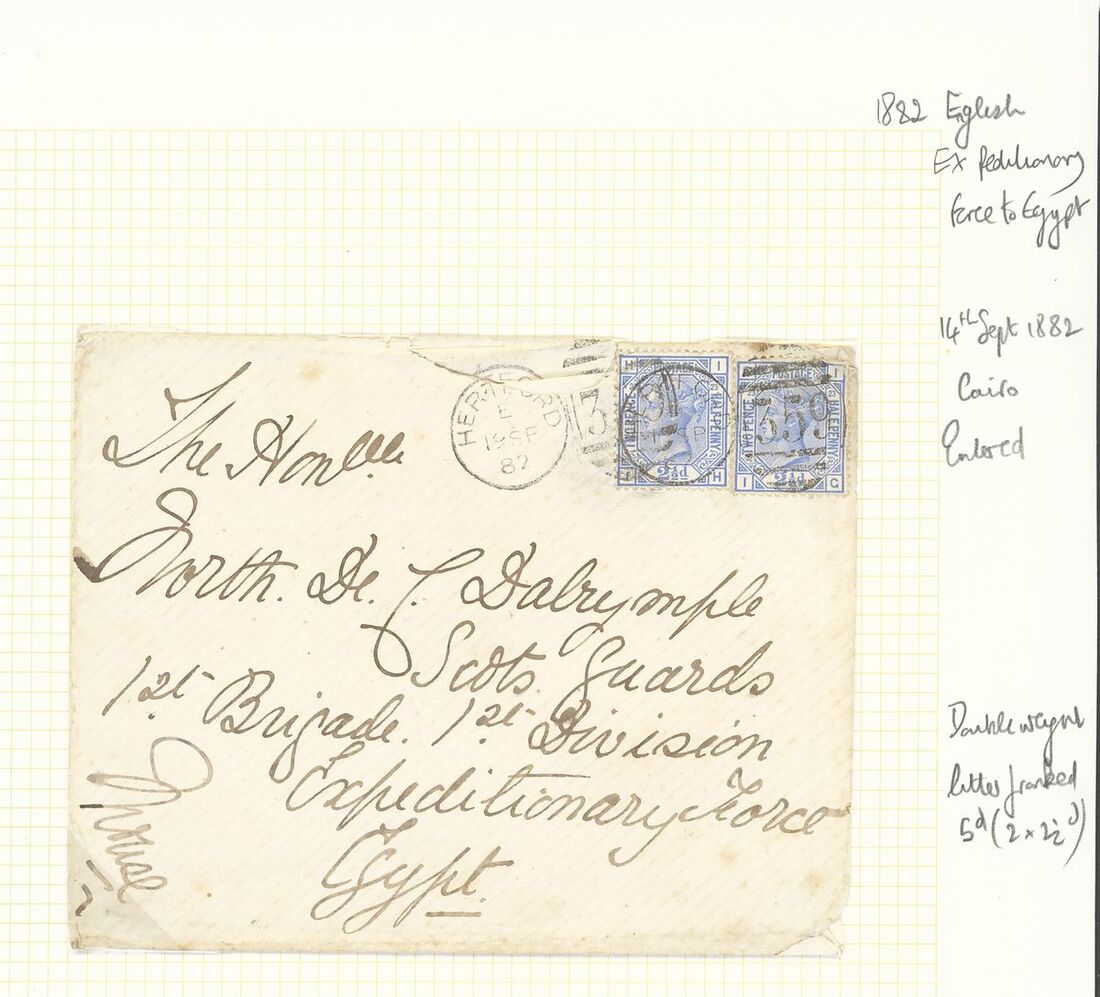 1882 English
Expeditionary
force to Egypt
14th Sept 1882
Cairo
Entered
HERTFORD
E
19 SP
82
TWO PENCE HALFPENNY
H I
2½d
I H
POSTAGE
359
TWO PENCE HALFPENNY
I
2½d
I G
The Honble
North. De. C Dalrymple
Scots Guards
1st Brigade. 1st Division
Expeditionary Force
Egypt.
Double weight
letter franked
5d (2 x 2½d)